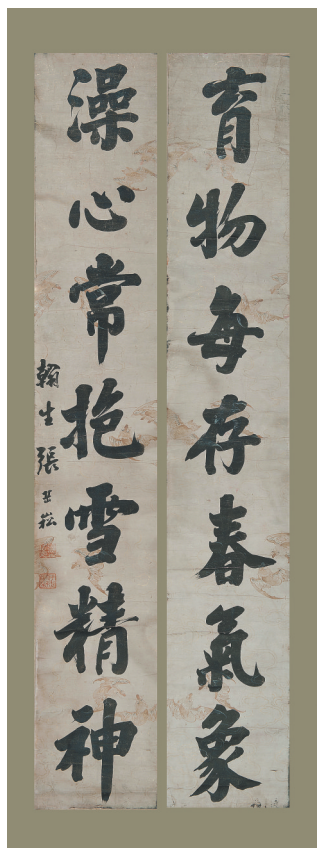 育物每存春氣象
澡心常抱雪精神
翰生張其崧